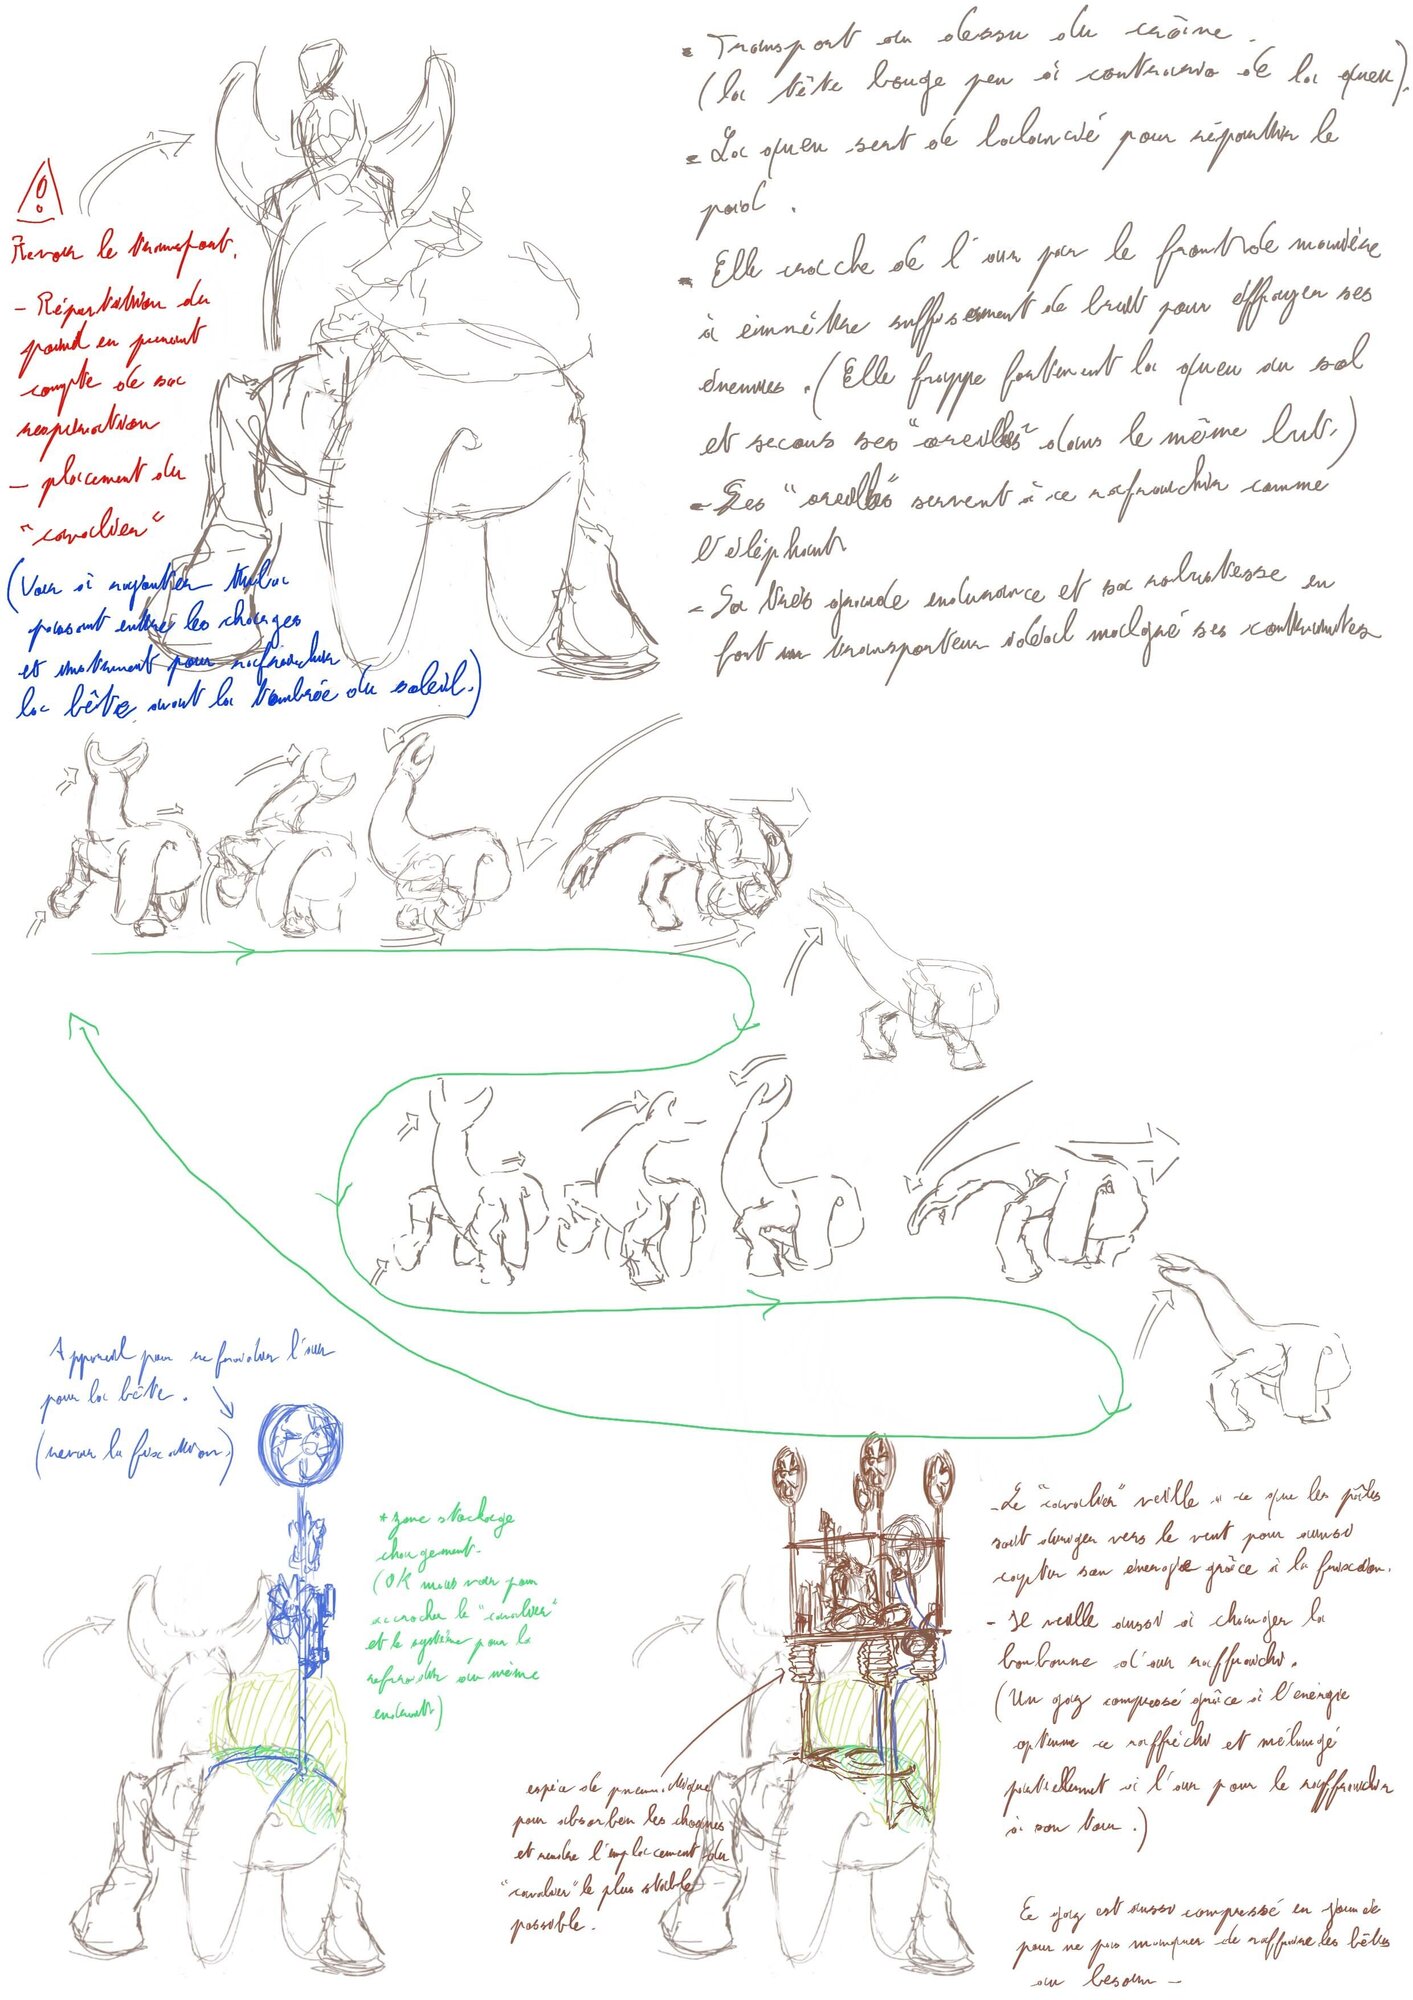 - Transport au dessu du crâne.
(la tête bouge peu à contrario de la queu).
- La queu sert de balancié pour répartir le
poid.
- Elle crache de l'air par le front de manière
à émmêttre suffisamment de bruit pour effrayer ses
énemies. (Elle frappe fortement la queu au sol
et secous ses "oreilles" dans le même but.)
- Ses "oreilles" servent à ce rafraichir comme
l'éléphant
- Sa très grande endurance et sa robustesse en
font un transporteur idéal malgré ses contraintes
Revoir le transport.
- Répartition du
poid en prenant
compte de sa
respiration
- placement du
"cavalier"
(Voir si rajouter tuba
passant entre les charges
et instrument pour rafraichir
la bête avant la tombée du soleil.)
Appareil pour refroidir l'air
pour la bête.
(revoir la fixation)
* zone stockage
chargement.
(OK mais voir pour
accrocher le "cavalier"
et le système pour la
refroidir au même
endroit)
espèce de pneumatique
pour absorber les chocs
et rendre l'emplacement du
"cavalier" le plus stable
possible.
- Le "cavalier" veille à ce que les pâles
soit diriger vers le vent pour ainsi
capter son énergie grâce à la fixation.
- Il veille aussi à changer la
bonbonne d'air raffraichi.
(Un gaz compressé grâce à l'énergie
optenue ce raffréchi et mélangé
partiellement à l'air pour le raffraichir
à son tour.)
Ce gaz est aussi compressé en journée
pour ne pas manquer de les bêtes
au besoin -